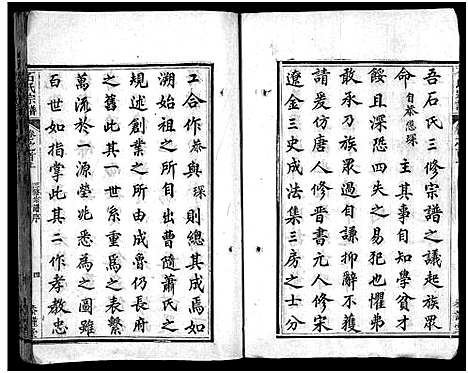 吾石氏三修宗譜之議起族眾
命自恭憑琛主其事自知學貧才
餒且深恐四失之易犯也懼弗
敢承乃族眾過自謙抑辭不獲
請爰仿唐人修晉元人修宋
遼金三史成法集三房之士分
工合作恭與琛則總其成焉如
溯始祖之所自出曹隨蕭氏之
規述創業之所由成魯仍長府
之舊此其一世系重為之表繫
萬流於一源塋兆悉為之圖雖
百世如指掌此其二作孝教忠
石氏宗譜
四